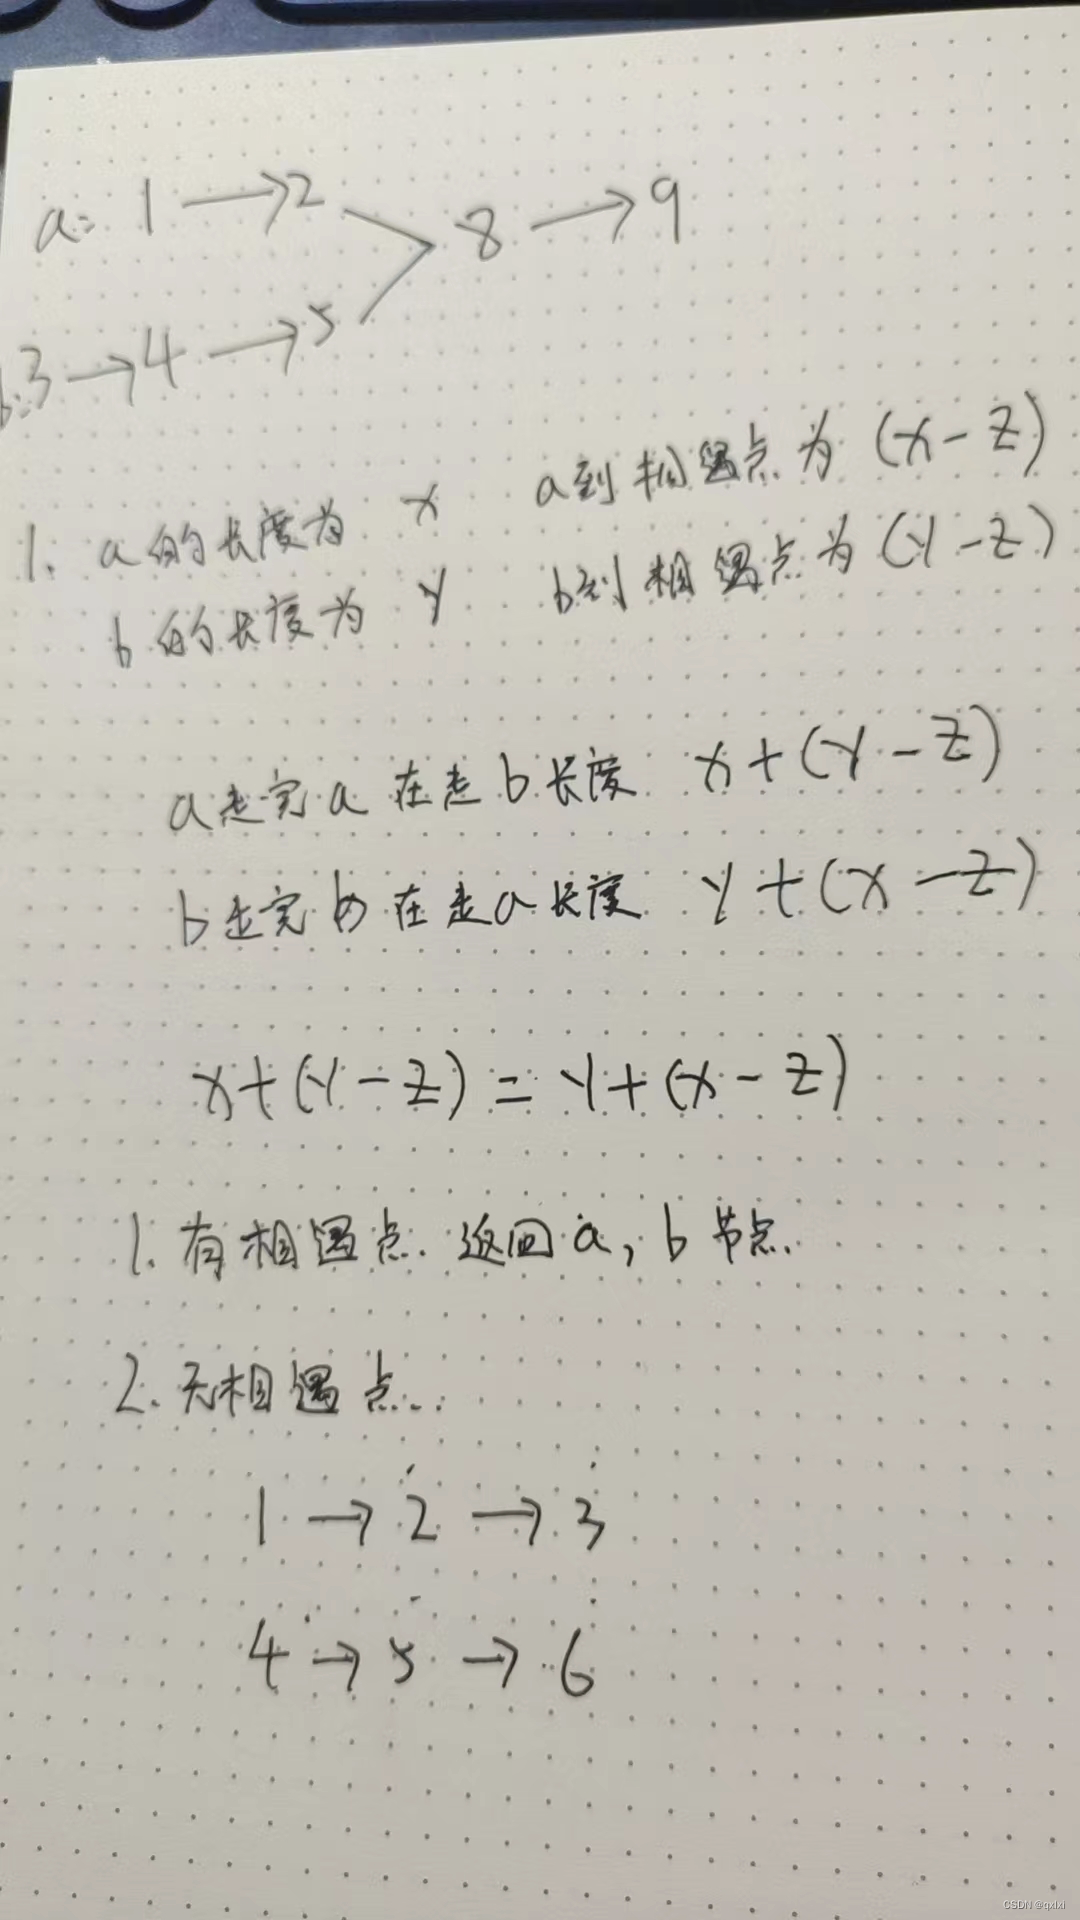 a: 1 → 2
8 → 9
b: 3 → 4 → 5
1. a的长度为 x a到相遇点为 (x-z)
b的长度为 y b到相遇点为 (y-z)
a走完a在走b长度 x+(y-z)
b走完b在走a长度 y+(x-z)
x+(y-z)=y+(x-z)
1. 有相遇点. 返回a, b节点.
2. 无相遇点..
1 → 2 → 3
4 → 5 → 6
CSDN @qxlxi